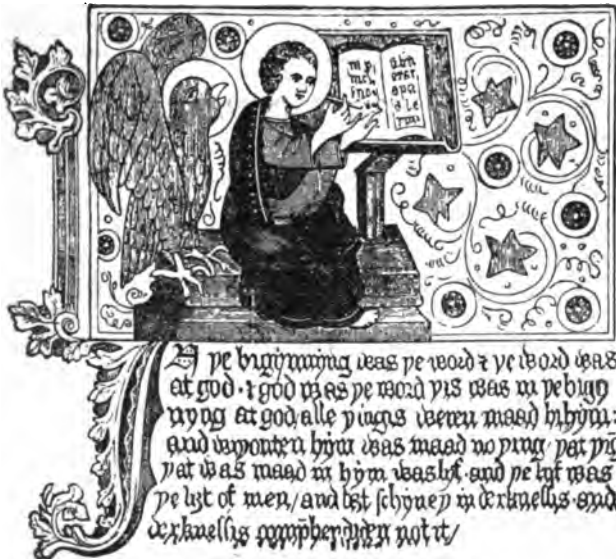 In þe bigynnyng was þe word & þe word was
at god · & god was þe word þis was in þe bigyn
nyng at god alle þingis weren maad bi hym :
and wiþouten hym was maad no þing · þat þīg
þat was maad in hym was lyf · and þe lyf was
þe liȝt of men / and liȝt schyneþ in derknessis · and
derknessis not it /